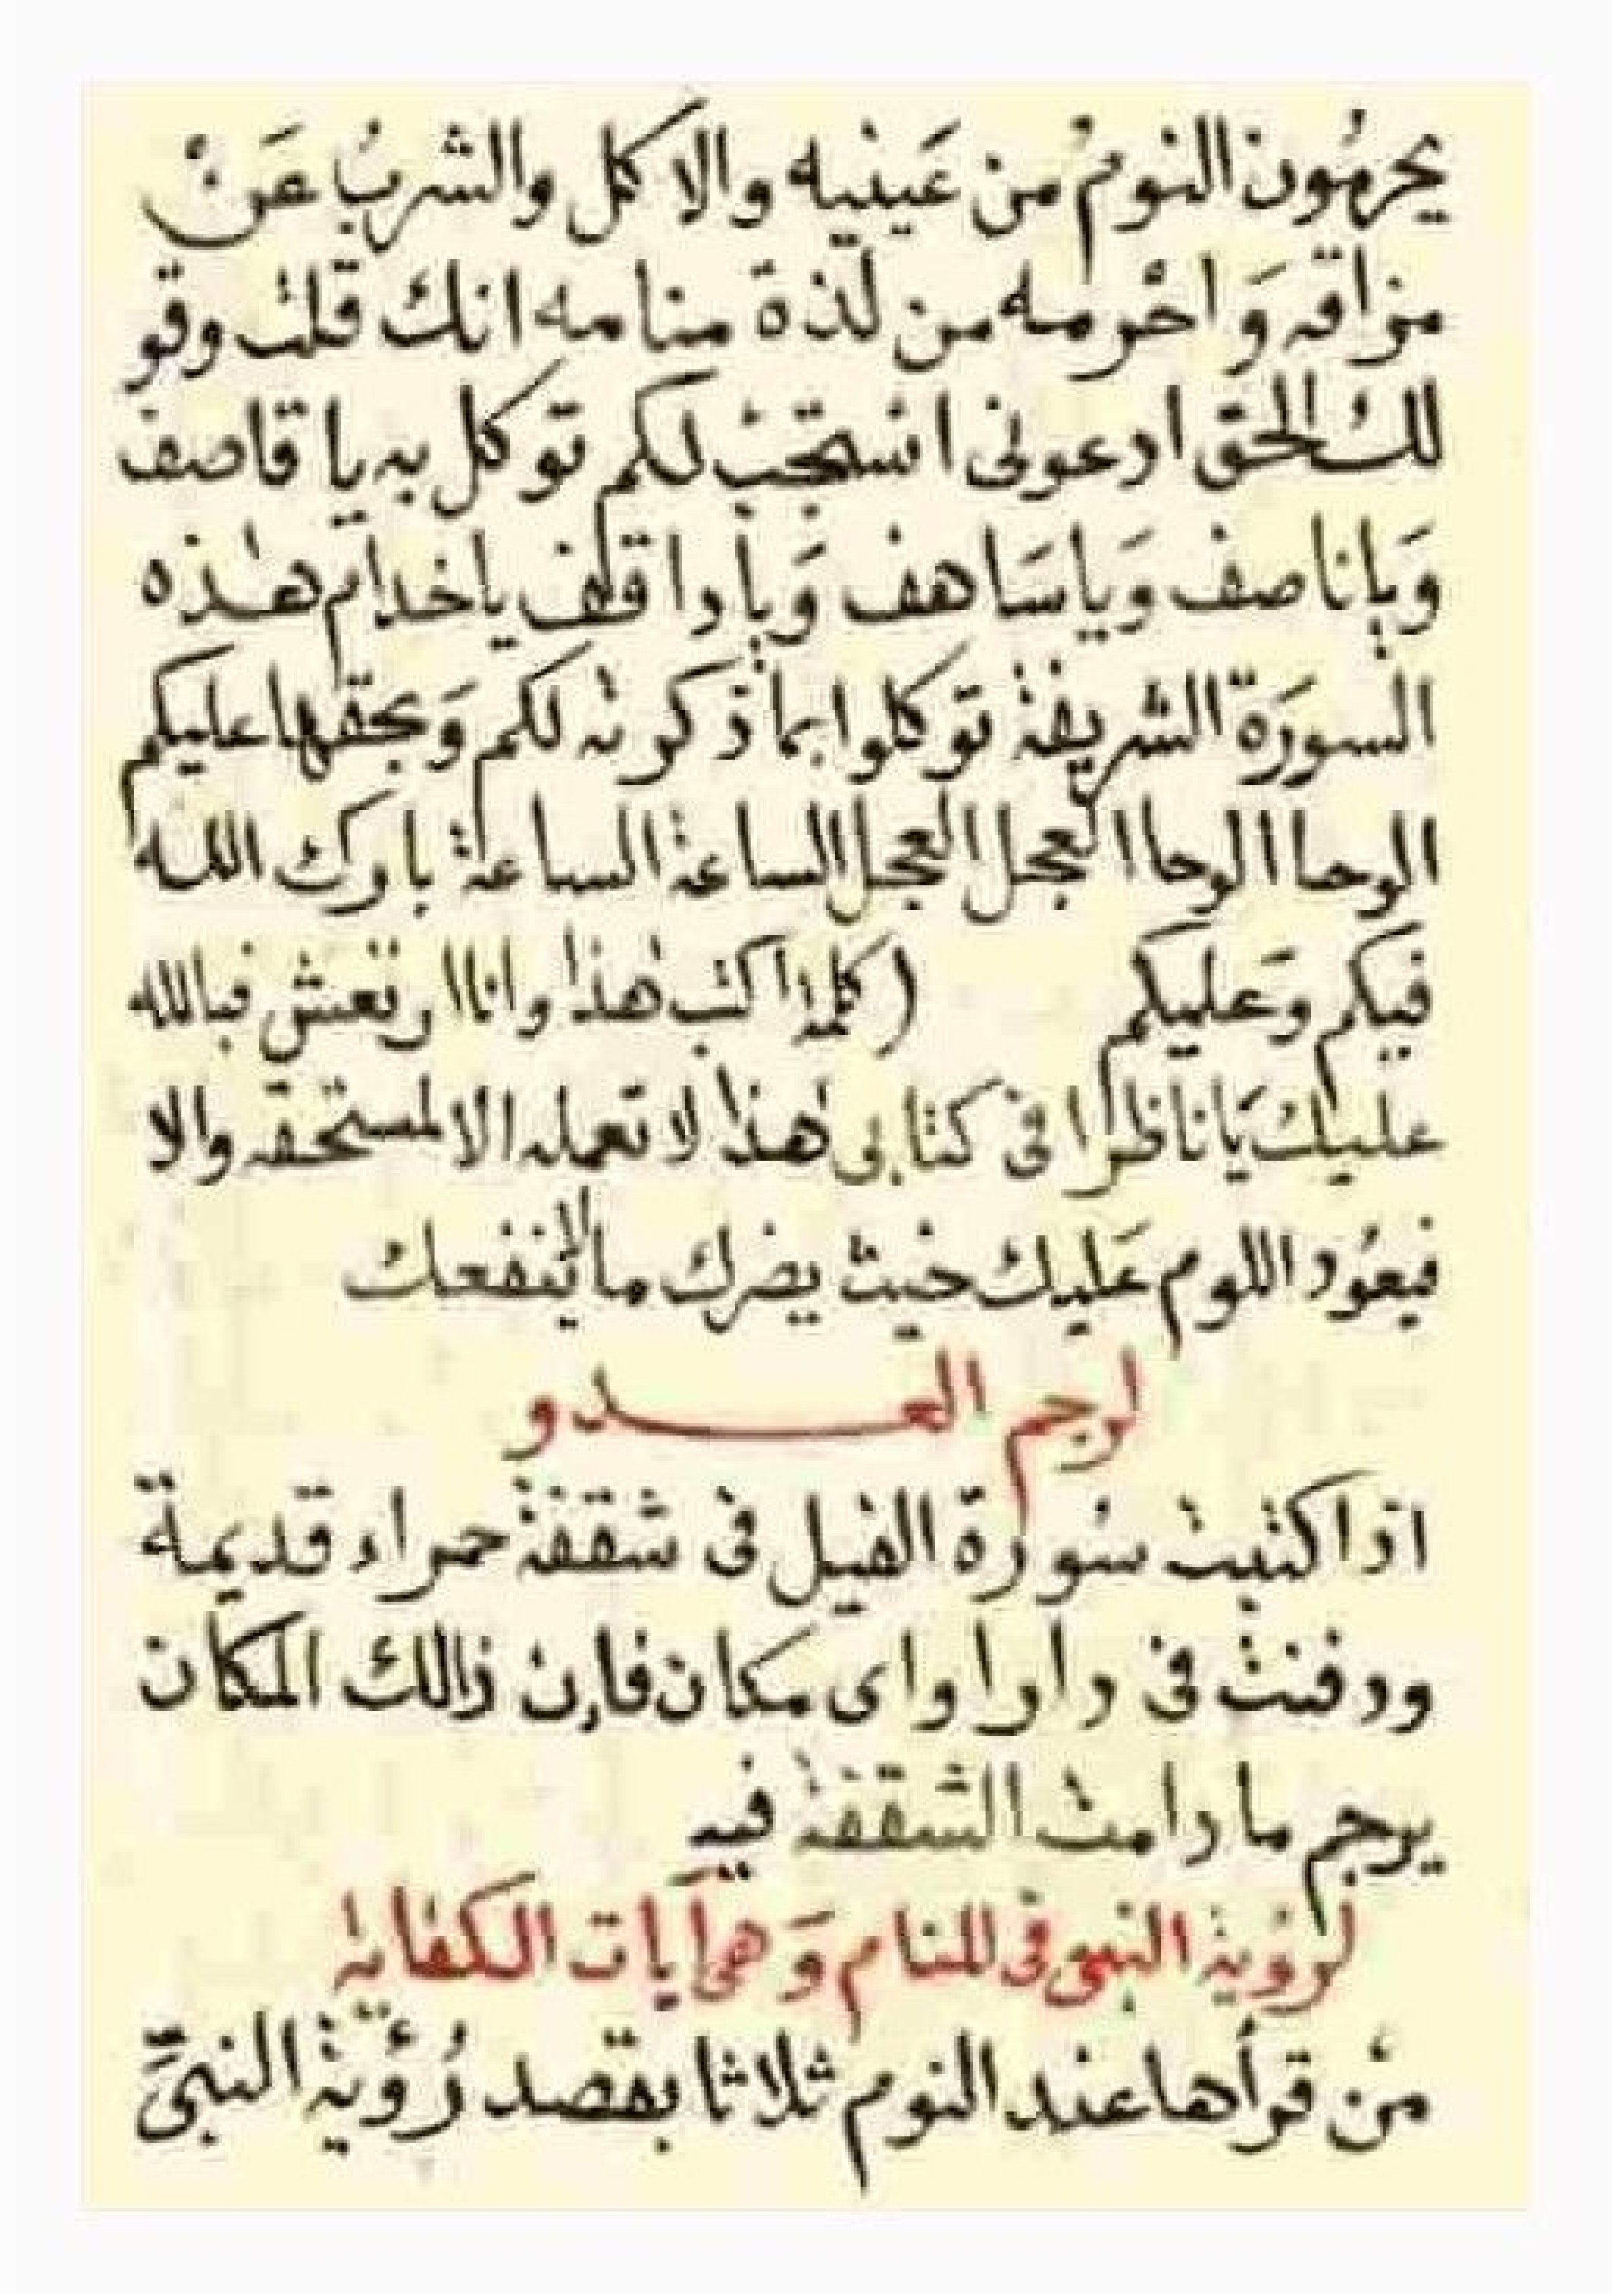 يحرمُون النومُ من عَينيه والاكل والشربُ عَنْ
مزاقه وَاحْرمه من لذة منامه انك قلت وقو
لك الحق ادعونى استجب لكم توكل به يا قاصف
وَيا ناصف وَيا سَاهف وَيا واقف يا خدام هذه
السورَة الشريفة توكلوا بما ذكرته لكم وَبحقها عليكم
الوحا الوحا العجل العجل الساعة الساعة بارك الله
فيكم وَعَليكم (كلمه اكتب هذا وانا ارتعش فبالله
عليك يَا ناظرا فى كتابى هذا لا تعمله الا لمستحقه والا
فيعُود اللوم عَليك حيث يضرك ما لاينفعك
لرجم العدو
اذا كتبت سُورة الفيل فى شقفة حمراء قديمة
ودفنت فى دارا واى مكان فإن ذالك المكان
يرجم ما دامت الشقفة فيه
لرؤية النبى فى المنام وَهى آيات الكفاية
من قرأها عند النوم ثلاثا بقصد رُؤية النبىِّ